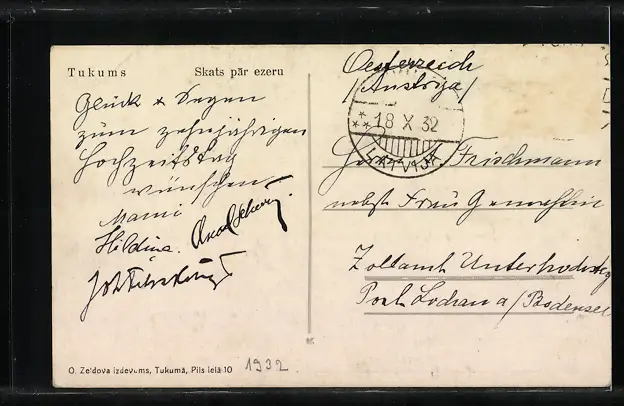 Tukums Skats pār ezeru
Glück & Segen
zum zehnjährigen
Hochzeitstag
wünschen
Mami
Hildina.
Oesterreich
/Austrija/
18 X 32
LATVIJA
Frischmann
nebst Frau Gemahlin
Zollamt Unterhochsteg
Post Lochau a/Bodensee
O. Zeidova izdevums, Tukumā, Pils ielā 10
1932.